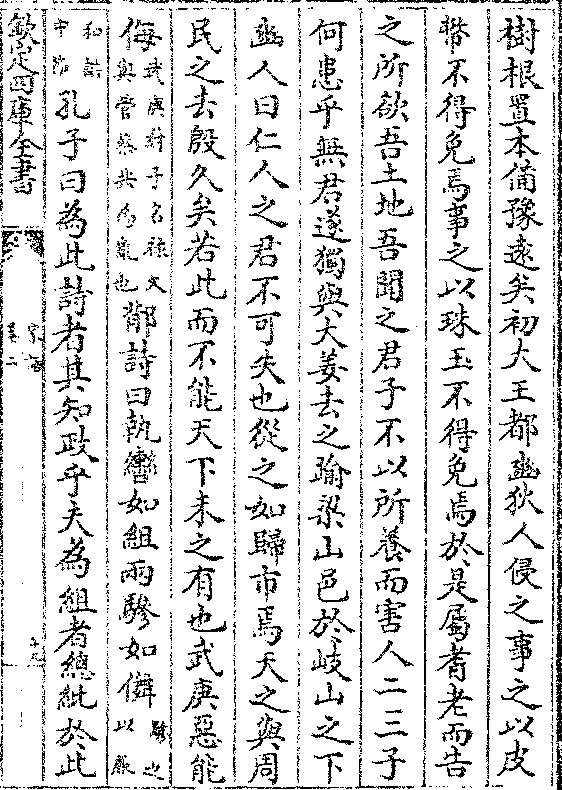 樹根置本備豫遠矣初大王都豳狄人侵之事之以皮
幣不得免焉事之以珠玉不得免焉於是屬耆老而告
之所欲吾土地吾聞之君子不以所養而害人二三子
何患乎無君遂獨與大姜去之踰梁山邑於岐山之下
豳人曰仁人之君不可失也從之如歸市焉天之與周
民之去殷久矣若此而不能天下未之有也武庚惡能
侮武庚紂子名祿父與管蔡共為亂也鄁詩曰執轡如組兩驂如儛驂也以服
和諧中節孔子曰為此詩者其知政乎夫為組者總紕於此
欽定四庫全書